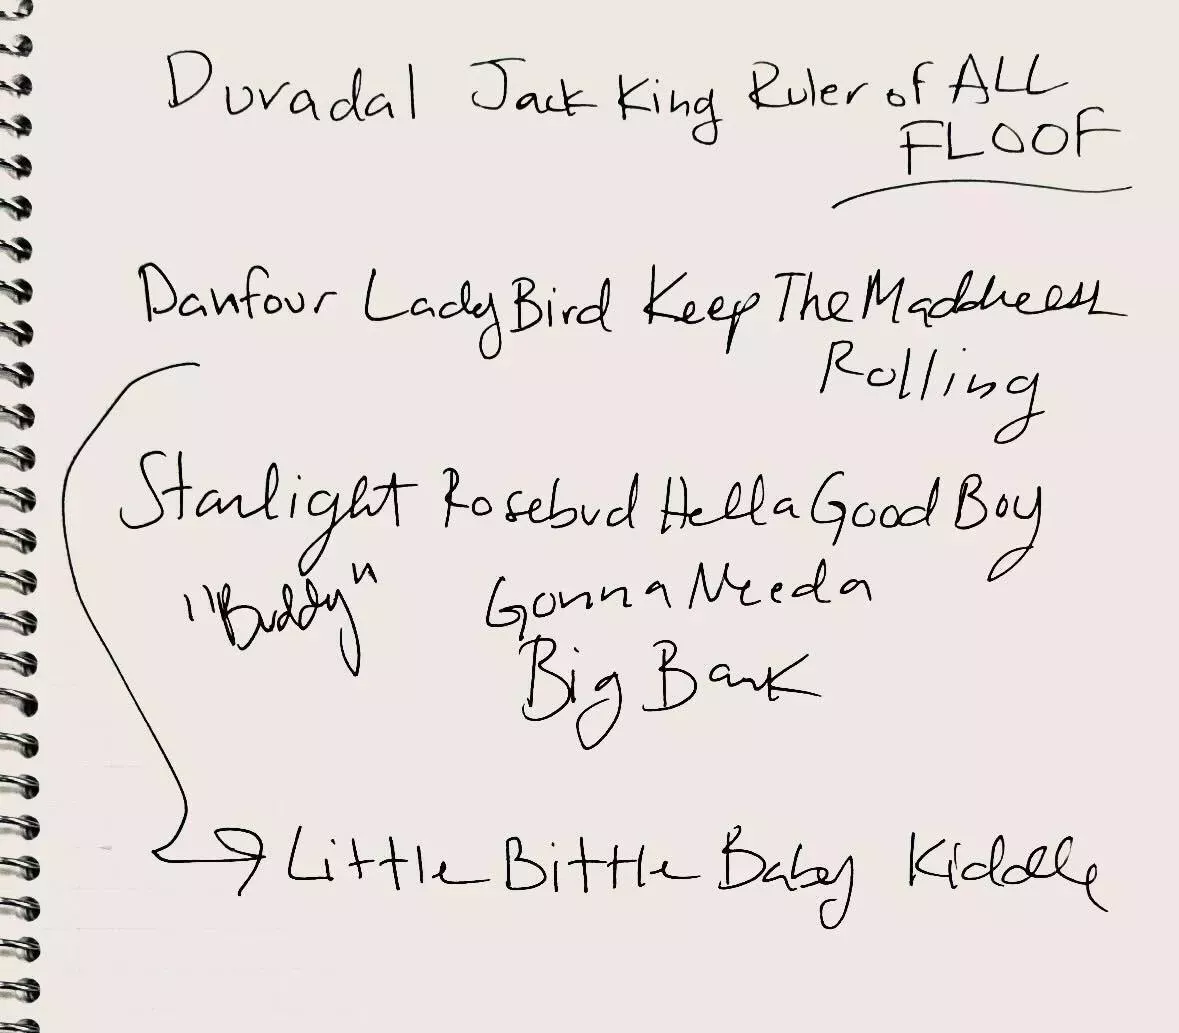 Duradal Jack King Ruler of ALL
FLOOF
Danfour Lady Bird Keep The Maddness
Rolling
Starlight Rosebud Hella Good Boy
"Buddy" Gonna Need a
Big Bank
Little Bittle Baby Kiddle